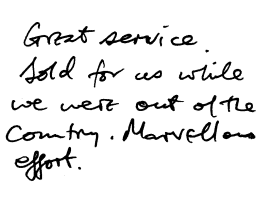 Great service.
Sold for us while
we were out of the
Country. Marvellous
effort.